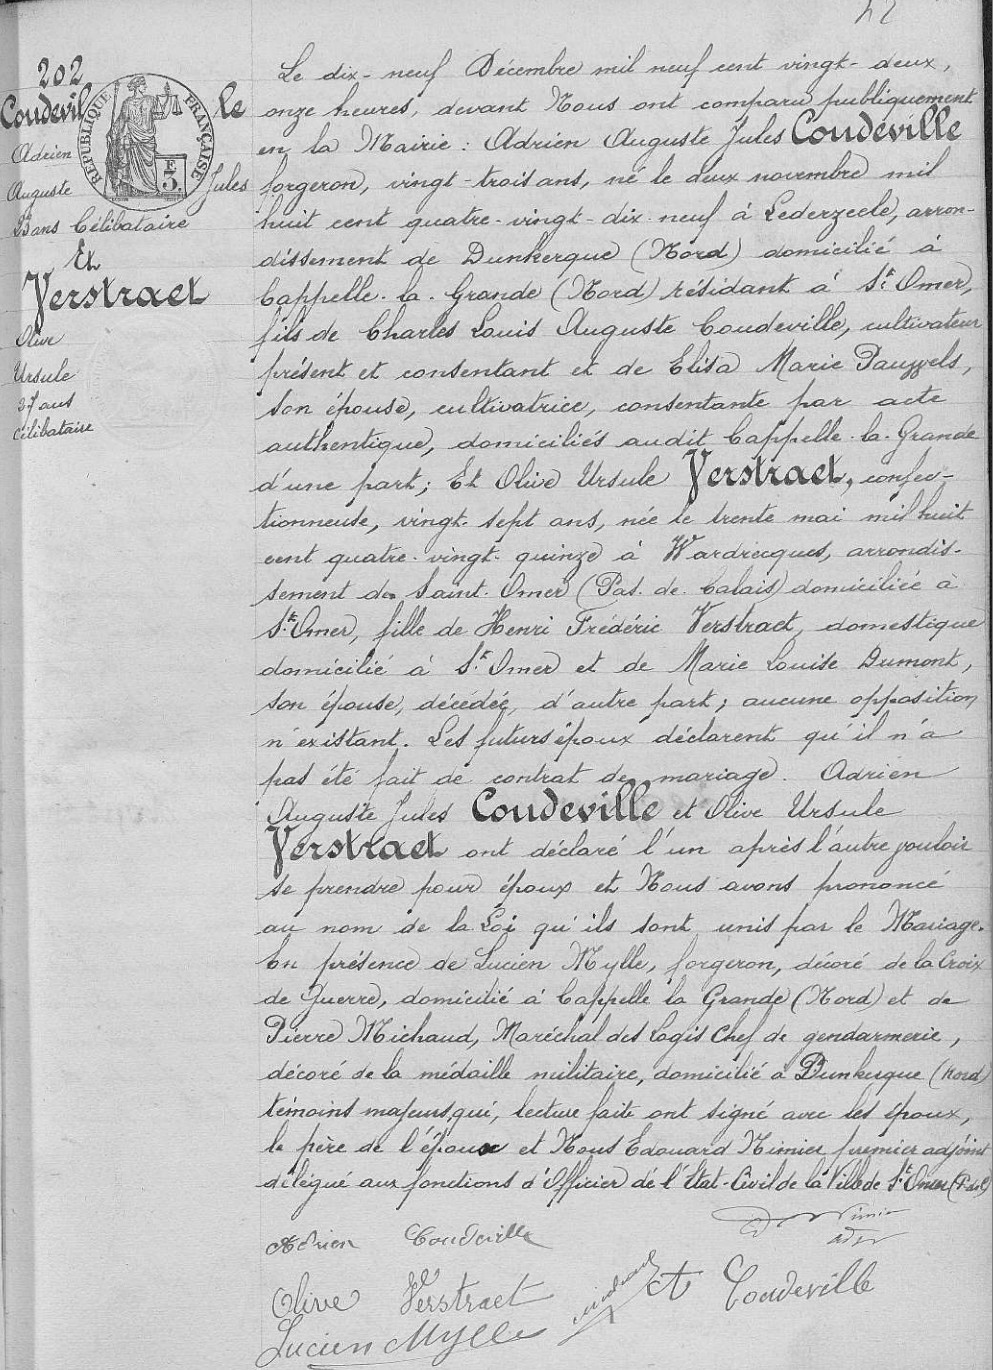 42
202
Coudeville
Adrien
Auguste Jules
23 ans Célibataire
Et
Verstraet
Olive
Ursule
27 ans
Célibataire
RÉPUBLIQUE FRANÇAISE
F
3
Le dix-neuf Décembre mil neuf cent vingt-deux,
onze heures, devant Nous ont comparu publiquement
en la Mairie : Adrien Auguste Jules Coudeville
forgeron, vingt-trois ans, né le deux novembre mil
huit cent quatre-vingt-dix neuf à Lederzeele, arron-
dissement de Dunkerque (Nord) domicilié à
Cappelle-la-Grande (Nord) résidant à St Omer,
fils de Charles Louis Auguste Coudeville, cultivateur
présent et consentant et de Elisa Marie Pauwels,
son épouse, cultivatrice, consentante par acte
authentique, domiciliés audit Cappelle-la-Grande
d'une part ; Et Olive Ursule Verstraet, confec-
tionneuse, vingt-sept ans, née le trente mai mil huit
cent quatre-vingt-quinze à Wardrecques, arrondis-
sement de Saint-Omer (Pas-de-Calais) domiciliée à
St Omer, fille de Henri Frédéric Verstraet, domestique
domicilié à St Omer et de Marie Louise Dumont,
son épouse, décédée, d'autre part ; aucune opposition
n'existant. Les futurs époux déclarent qu'il n'a
pas été fait de contrat de mariage. Adrien
Auguste Jules Coudeville et Olive Ursule
Verstraet ont déclaré l'un après l'autre vouloir
se prendre pour époux et Nous avons prononcé
au nom de la Loi qu'ils sont unis par le Mariage.
En présence de Lucien Mylle, forgeron, décoré de la Croix
de Guerre, domicilié à Cappelle la Grande (Nord) et de
Pierre Michaud, Maréchal des Logis Chef de gendarmerie,
décoré de la médaille militaire, domicilié à Dunkerque (Nord)
témoins majeurs, qui, lecture faite ont signé avec les époux,
le père de l'époux et Nous Edouard Nimier premier adjoint
délégué aux fonctions d'Officier de l'Etat-Civil de la Ville de St Omer (P. de C)
Adrien Coudeville
Olive Verstraet
A Coudeville
Lucien Mylle